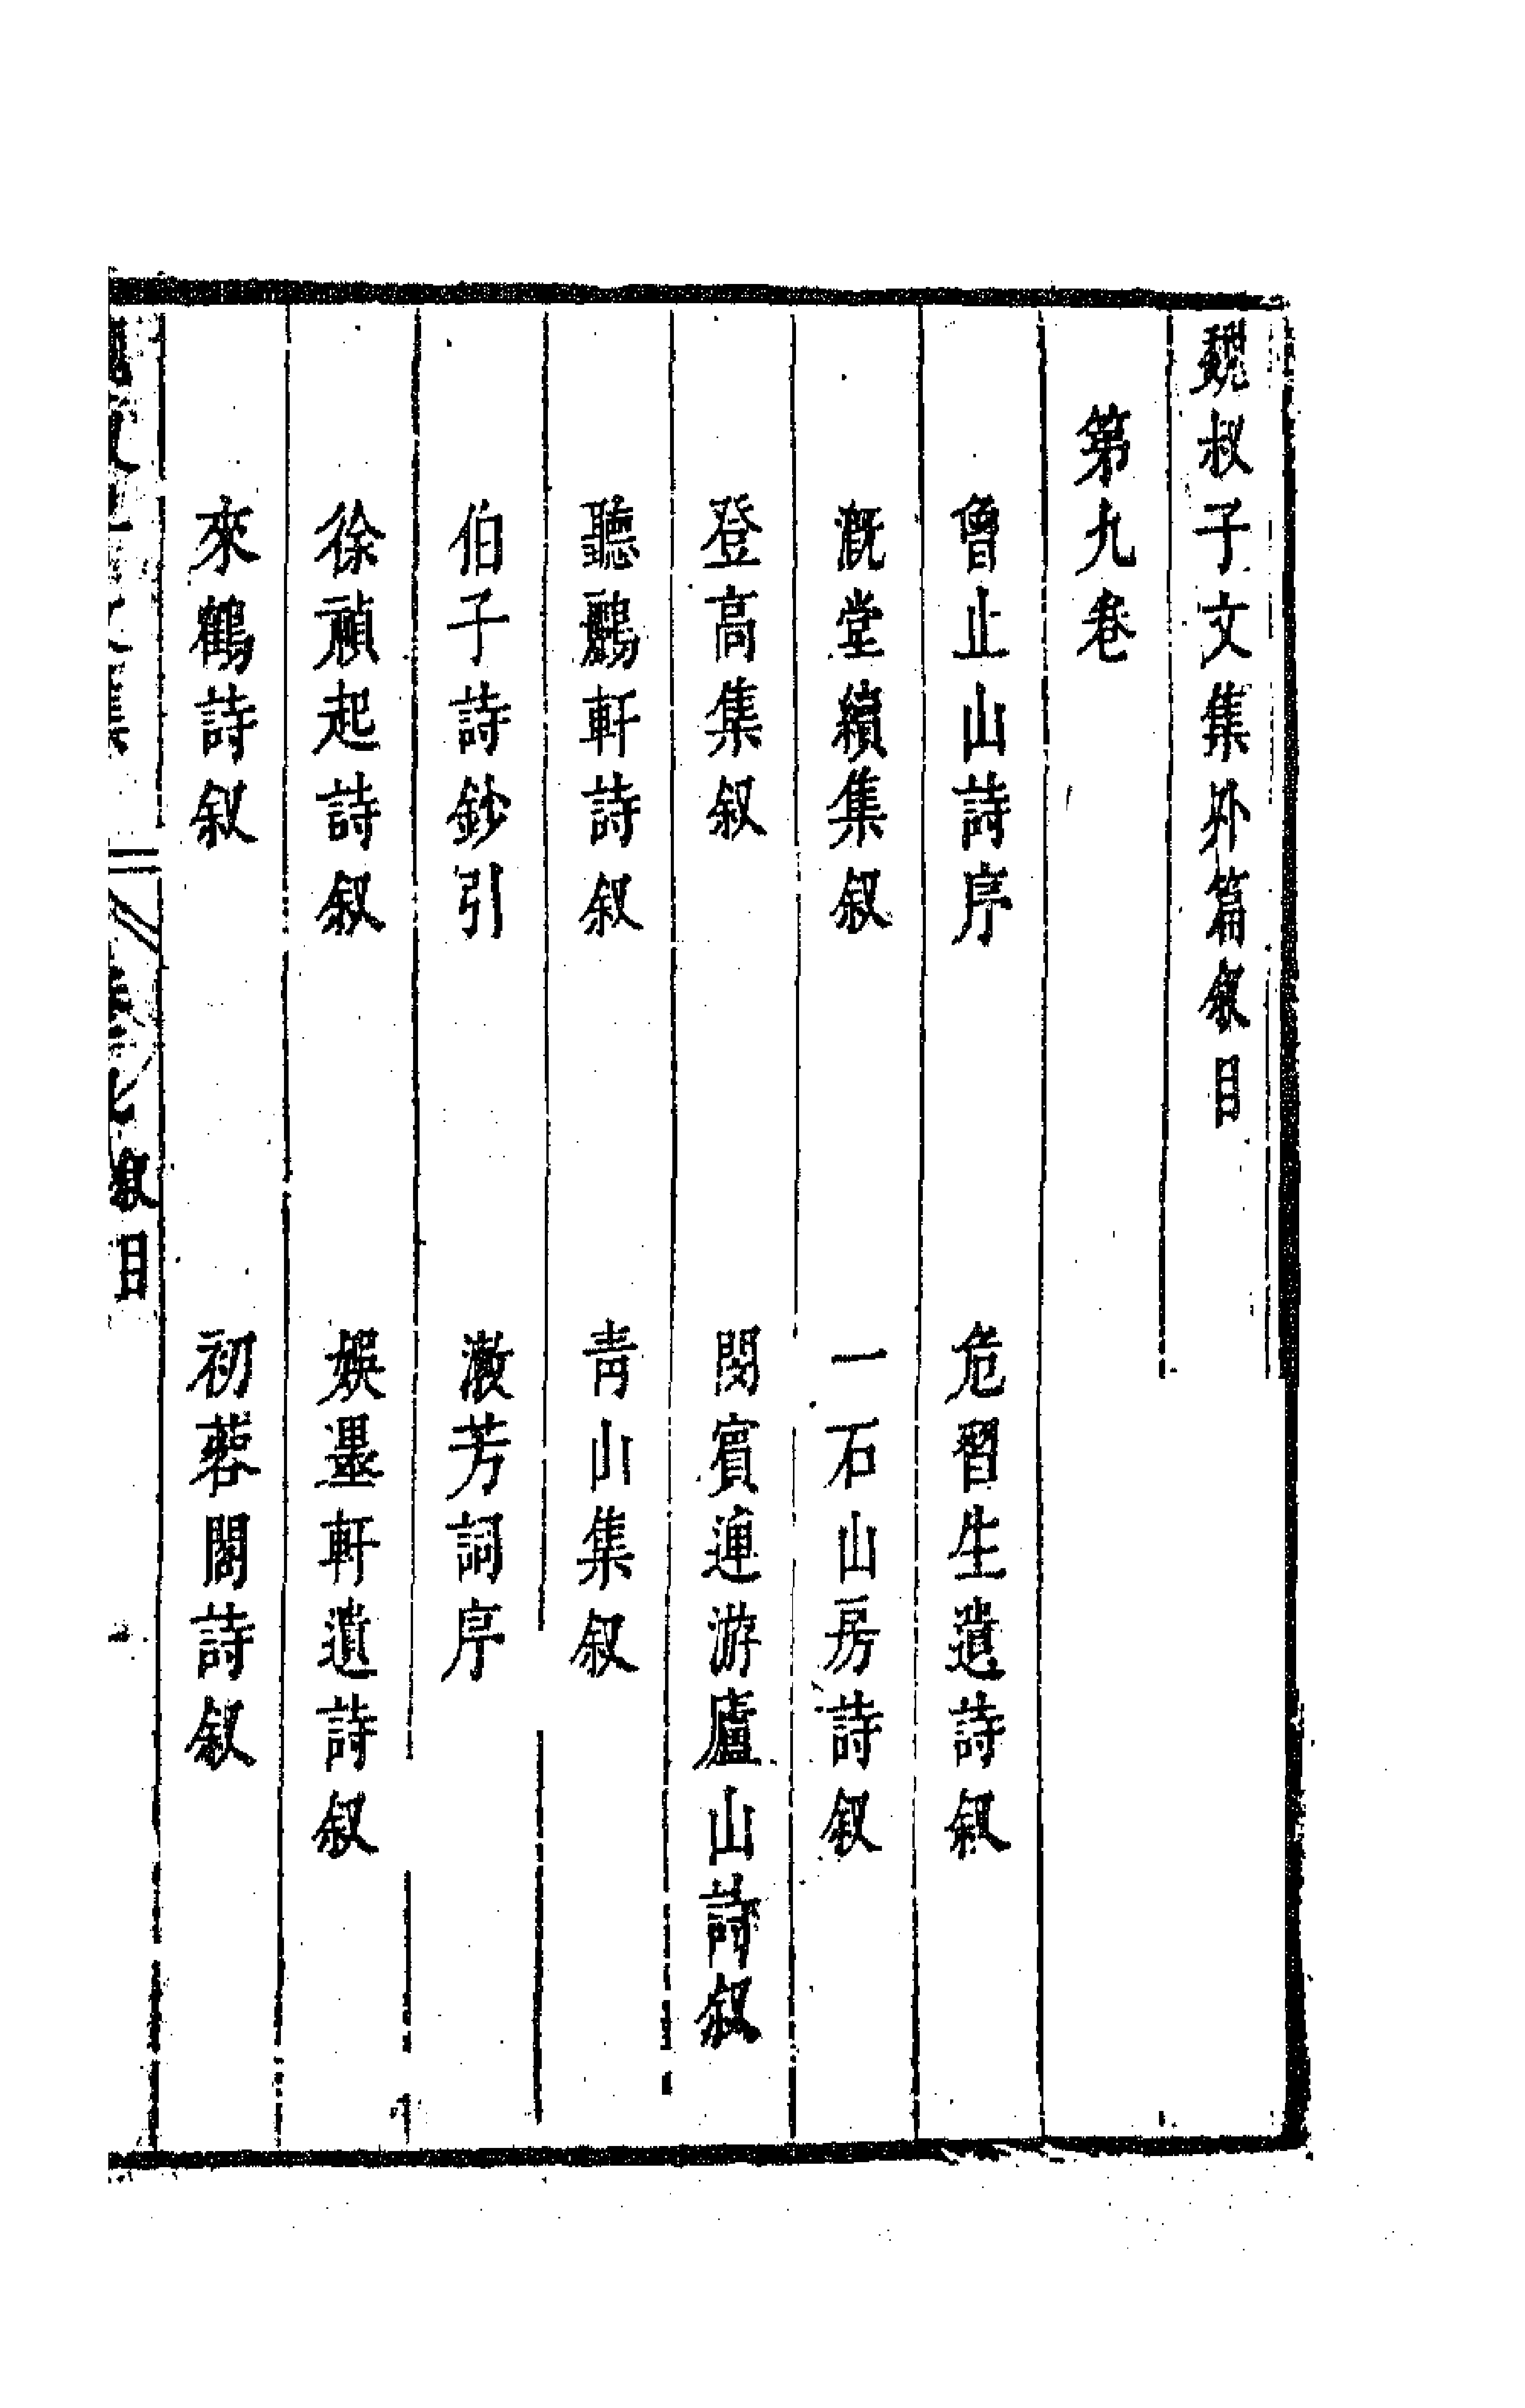 魏叔子文集外篇叙目
第九卷
曾止山詩序　危習生遺詩叙
溉堂續集叙　一石山房詩叙
登高集叙　閔賓連游廬山詩叙
聽鸝軒詩叙　青山集叙
伯子詩鈔引　漱芳詞序
徐禎起詩叙　娛墨軒遺詩叙
來鶴詩叙　初蓉閣詩叙
叙目